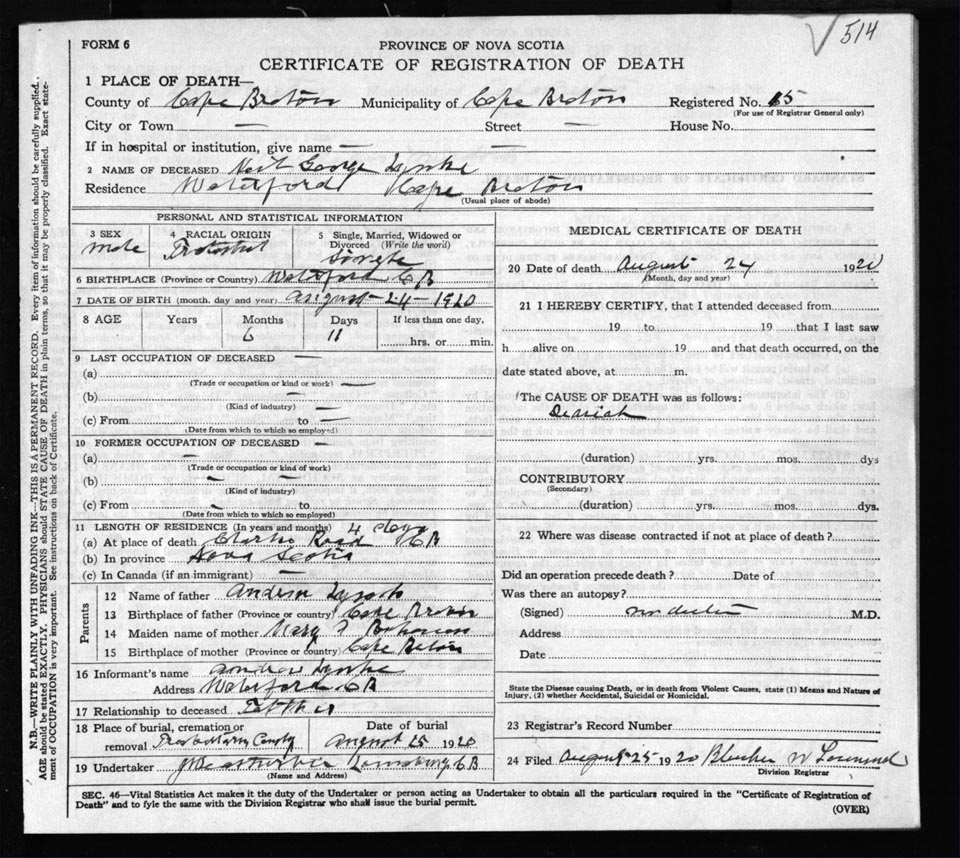 514
FORM 6
PROVINCE OF NOVA SCOTIA
CERTIFICATE OF REGISTRATION OF DEATH
1 PLACE OF DEATH—
County of Cape Breton Municipality of Cape Breton Registered No. 15
(For use of Registrar General only)
City or Town — Street — House No.
If in hospital or institution, give name —
2 NAME OF DECEASED Neil George
Residence Waterford Cape Breton
(Usual place of abode)
PERSONAL AND STATISTICAL INFORMATION
3 SEX 4 RACIAL ORIGIN 5 Single, Married, Widowed or Divorced (Write the word)
male Protestant Single
6 BIRTHPLACE (Province or Country) Waterford C B
7 DATE OF BIRTH (month, day and year) August - 24 - 1920
8 AGE Years Months Days If less than one day,
6 11 hrs. or min.
9 LAST OCCUPATION OF DECEASED —
(a) —
(Trade or occupation or kind or work)
(b) —
(Kind of industry)
(c) From to —
(Date from which to which so employed)
10 FORMER OCCUPATION OF DECEASED —
(a) —
(Trade or occupation or kind of work)
(b) —
(Kind of industry)
(c) From — to
(Date from which to which so employed)
11 LENGTH OF RESIDENCE (In years and months) 4 days
(a) At place of death Road C B
(b) In province Nova Scotia
(c) In Canada (if an immigrant) —
Parents
12 Name of father Andrew
13 Birthplace of father (Province or country) Cape Breton
14 Maiden name of mother Mary
15 Birthplace of mother (Province or country) Cape Breton
16 Informant's name Andrew
Address Waterford C B
17 Relationship to deceased Father
18 Place of burial, cremation or removal Date of burial
August 25 1920
19 Undertaker C B
(Name and Address)
MEDICAL CERTIFICATE OF DEATH
20 Date of death August 24 1920
(Month, day and year)
21 I HEREBY CERTIFY, that I attended deceased from
19 to 19 that I last saw
h alive on 19 and that death occurred, on the
date stated above, at m.
The CAUSE OF DEATH was as follows:
(duration) yrs. mos. dys
CONTRIBUTORY
(Secondary)
(duration) yrs. mos. dys.
22 Where was disease contracted if not at place of death?
Did an operation precede death? Date of
Was there an autopsy?
(Signed) M.D.
Address
Date
State the Disease causing Death, or in death from Violent Causes, state (1) Means and Nature of
Injury, (2) whether Accidental, Suicidal or Homicidal.
23 Registrar's Record Number
24 Filed August 25 1920
Division Registrar
SEC. 46—Vital Statistics Act makes it the duty of the Undertaker or person acting as Undertaker to obtain all the particulars required in the "Certificate of Registration of
Death" and to fyle the same with the Division Registrar who shall issue the burial permit.
(OVER)
N.B.—WRITE PLAINLY WITH UNFADING INK—THIS IS A PERMANENT RECORD. Every item of information should be carefully supplied.
AGE should be stated EXACTLY. PHYSICIANS should STATE CAUSE OF DEATH in plain terms, so that it may be properly classified. Exact state-
ment of OCCUPATION is very important. See instructions on back of Certificate.